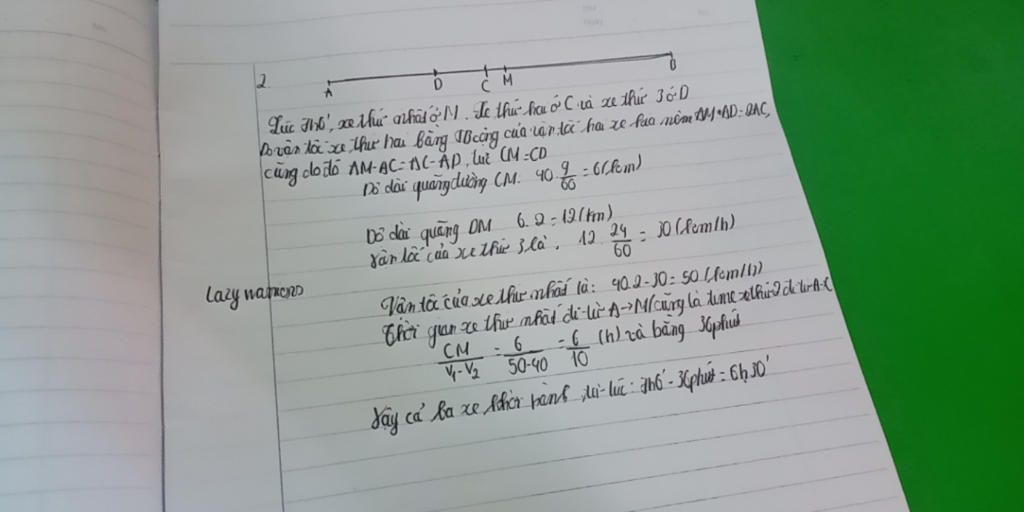 2
A D C M B
Lúc 7h6', xe thứ nhất ở M. Xe thứ hai ở C và xe thứ 3 ở D
Do vận tốc xe thứ hai bằng TB cộng của vận tốc hai xe kia nên AM+AD=2AC,
cũng do đó AM-AC=AC-AD, tức CM=CD
Độ dài quãng đường CM: 40. 9/60 = 6 (km)
Độ dài quãng DM 6.2=12(km)
Vận tốc của xe thứ 3 là. 12 24/60 = 30 (km/h)
lazy
Vận tốc của xe thứ nhất là: 40.2-30=50 (km/h)
Thời gian xe thứ nhất đi từ A→M (cũng là xe thứ 2 đi từ A-C
CM/V₁-V₂ = 6/50-40 = 6/10 (h) và bằng 36 phút
Vậy cả ba xe khởi hành lúc: 7h6'-36phút=6h30'